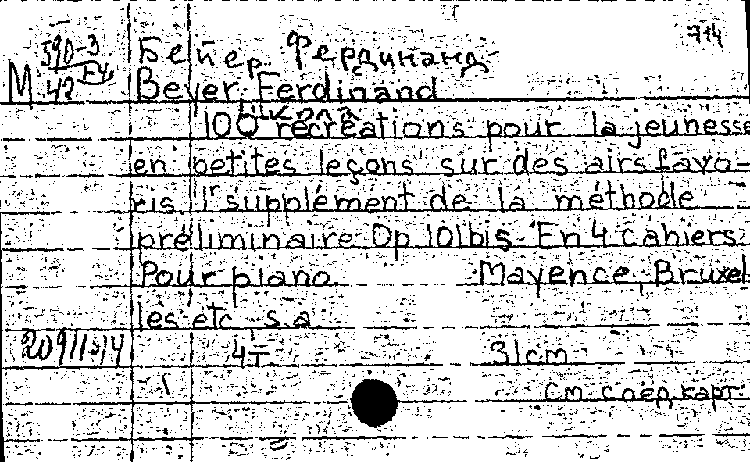 714
М 590-3
42
Бейер Фердинанд
Beyer Ferdinand
школа
100 récréations pour la jeunesse
en petites leçons sur des airs favo-
ris. 1 supplément de la méthode
préliminaire Op 101bis. En 4 cahiers.
Pour piano. Mayence, Bruxel
les etc. s.a.
4т 31cm
См. соед. карт.